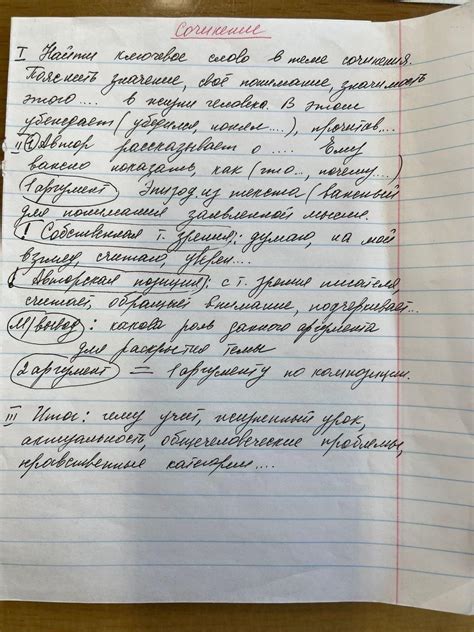 Сочинение
I Найти ключевое слово в теме сочинения.
Пояснить значение, своё понимание, значимость
этого .... в жизни человека. В этом
убеждает (убедился, понял ...), прочитав...
II Автор рассказывает о .... Ему
важно показать, как (что.., почему...)
1 аргумент Эпизод из текста (важный
для понимания заявленной мысли.
Собственная т. зрения: думаю, на мой
взгляд, считаю, уверен....
Авторская позиция: с т. зрения писателя,
считает, обращает внимание, подчеркивает...
М/вывод: какова роль данного аргумента
для раскрытия темы
2 аргумент = 1 аргументу по композиции.
III Итог: чему учит, жизненный урок,
актуальность, общечеловеческие проблемы,
нравственные категории....